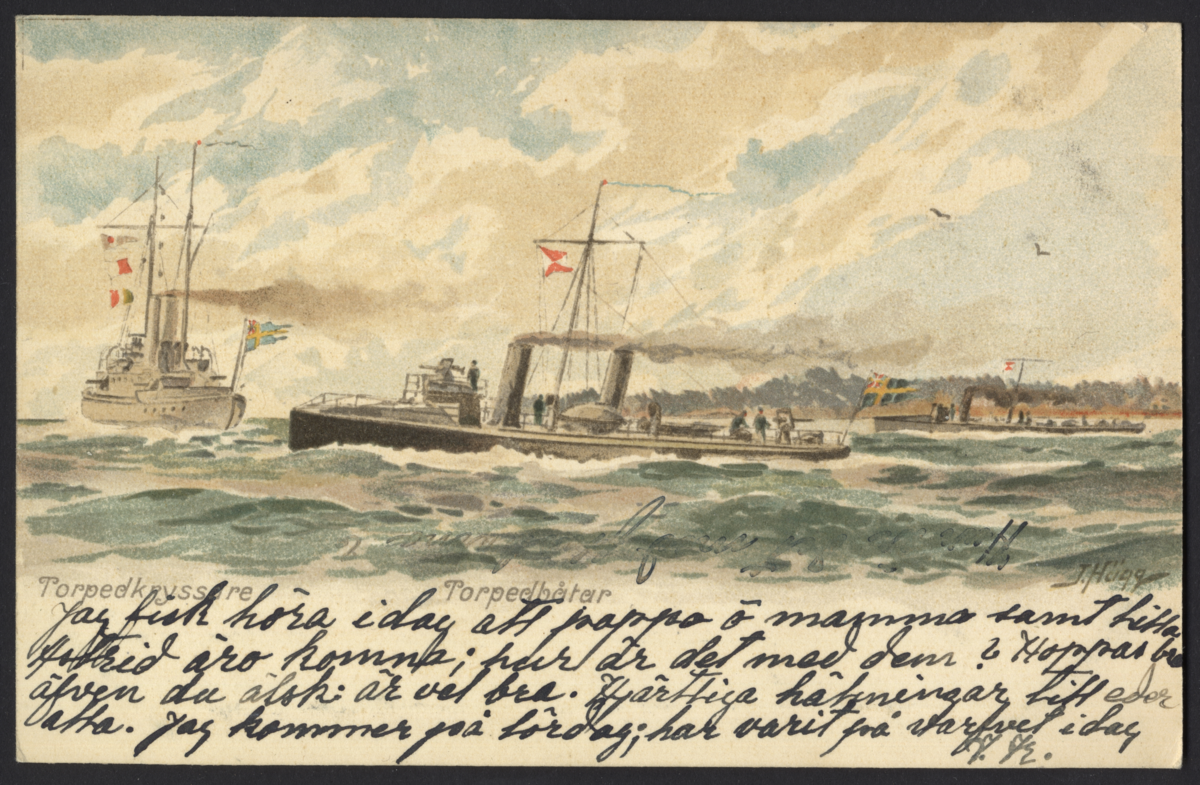 Torpedkryssare
Torpedbåtar
J. Hägg
Jag fick höra idag att pappa ö mamma samt lilla
Astrid äro komna; hur är det med dem? Hoppas bra
äfven du älsk: är vel bra. Hjärtliga hälsningar till eder
alla. Jag kommer på lördag; har varit på varfvet idag